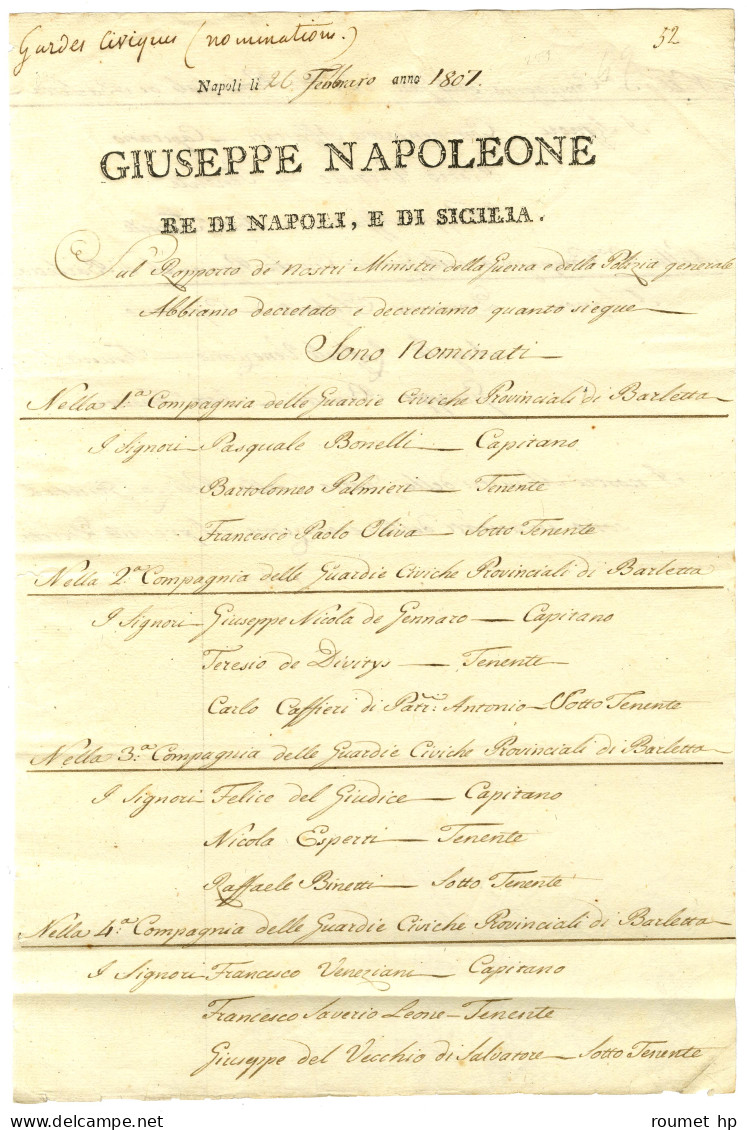 Gardes Civiques (nominations.)
52
Napoli li 26 Febbraro anno 1807.
GIUSEPPE NAPOLEONE
RE DI NAPOLI, E DI SICILIA.
Sul Rapporto de' nostri Ministri della Guerra e della Polizia generale
Abbiamo decretato e decretiamo quanto siegue
Sono Nominati
Nella 1.a Compagnia delle Guardie Civiche Provinciali di Barletta
I Signori Pasquale Bonelli — Capitano
Bartolomeo Palmieri — Tenente
Francesco Paolo Oliva — Sotto Tenente
Nella 2.a Compagnia delle Guardie Civiche Provinciali di Barletta
I Signori Giuseppe Nicola de Gennaro — Capitano
Teresio de Divitys — Tenente
Carlo Caffieri di Antonio — Sotto Tenente
Nella 3.a Compagnia delle Guardie Civiche Provinciali di Barletta
I Signori Felice del Giudice — Capitano
Nicola Esperti — Tenente
Raffaele Binetti — Sotto Tenente
Nella 4.a Compagnia delle Guardie Civiche Provinciali di Barletta
I Signori Francesco Veneziani — Capitano
Francesco Saverio Leone — Tenente
Giuseppe del Vecchio di Salvatore — Sotto Tenente
© roumet hp